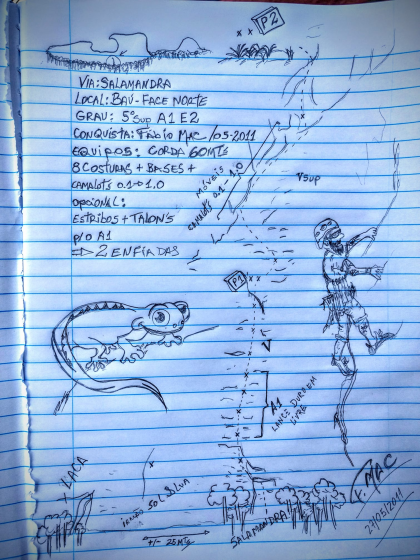 P2
VIA: SALAMANDRA
LOCAL: BAÚ-FACE NORTE
GRAU: 5º SUP A1 E2
CONQUISTA: FÁBIO MAC /05-2011
EQUIPOS: CORDA 60MTS
8 COSTURAS + BASES +
CAMALOTS 0.1 → 1.0
OPCIONAL:
ESTRIBOS + TALONS
P/O A1
⇒ 2 ENFIADAS
MÓVEIS
CAMALOTS 0.1 - 1.0
SUP
P1
V
A1
LANCE DURO EM
LIVRE
LACA
SOL
+/- 25MTS
SALAMANDRA
F. MAC
27/05/2011